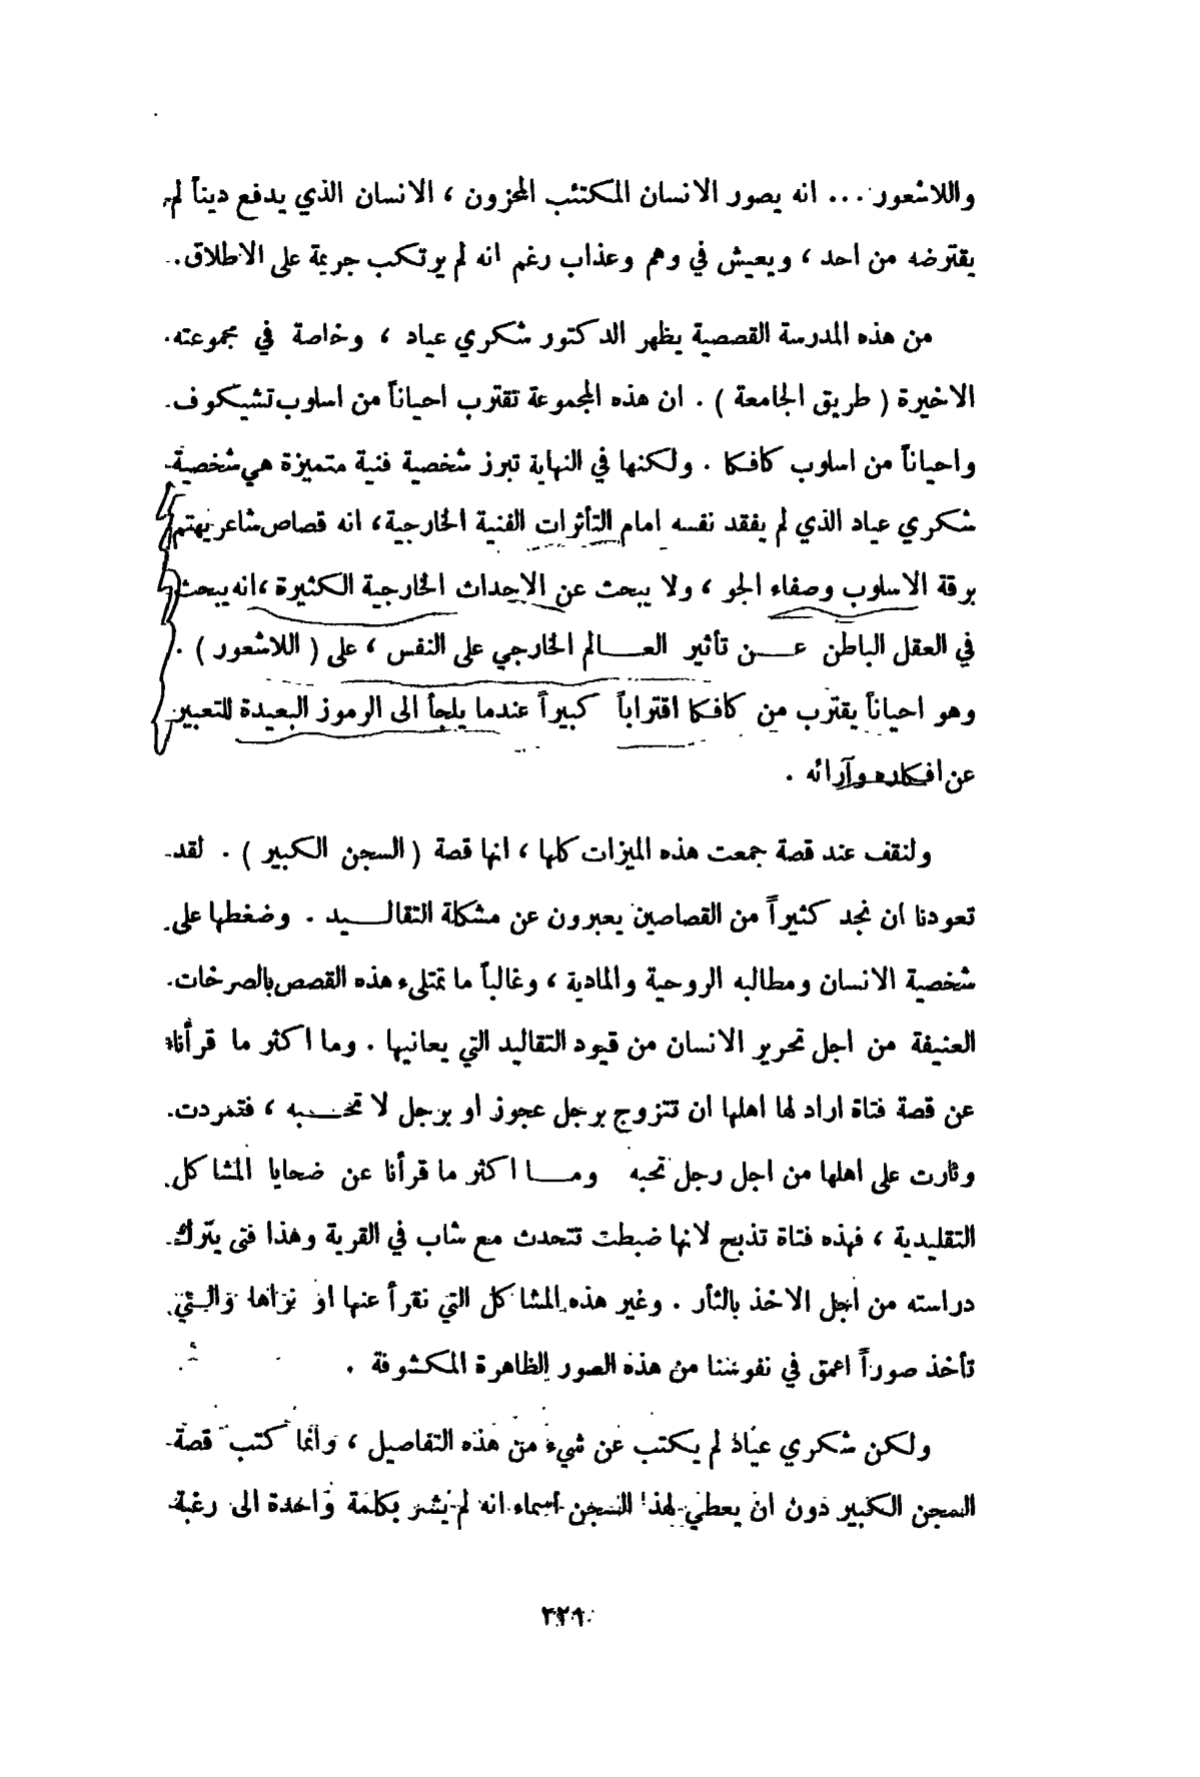 واللاشعور ... انه يصور الانسان المكتئب المحزون ، الانسان الذي يدفع ديناً لم
يقترضه من احد ، ويعيش في وهم وعذاب رغم انه لم يرتكب جريمة على الاطلاق .
من هذه المدرسة القصصية يظهر الدكتور شكري عياد ، وخاصة في مجموعته
الاخيرة ( طريق الجامعة ) . ان هذه المجموعة تقترب احياناً من اسلوب تشيكوف
واحياناً من اسلوب كافكا . ولكنها في النهاية تبرز شخصية فنية متميزة هي شخصية
شكري عياد الذي لم يفقد نفسه امام التأثرات الفنية الخارجية ، انه قصاص شاعر يهتم
برقة الاسلوب وصفاء الجو ، ولا يبحث عن الاحداث الخارجية الكثيرة ، انه يبحث
في العقل الباطن عن تأثير العالم الخارجي على النفس ، على ( اللاشعور ) .
وهو احياناً يقترب من كافكا اقتراباً كبيراً عندما يلجأ الى الرموز البعيدة للتعبير
عن افكاره وآرائه .
ولنقف عند قصة جمعت هذه الميزات كلها ، انها قصة ( السجن الكبير ) . لقد
تعودنا ان نجد كثيراً من القصاصين يعبرون عن مشكلة التقاليد . وضغطها على
شخصية الانسان ومطالبه الروحية والمادية ، وغالباً ما تمتلىء هذه القصص بالصرخات
العنيفة من اجل تحرير الانسان من قيود التقاليد التي يعانيها . وما اكثر ما قرأنا
عن قصة فتاة اراد لها اهلها ان تتزوج برجل عجوز او برجل لا تحبه ، فتمردت
وثارت على اهلها من اجل رجل تحبه وما اكثر ما قرأنا عن ضحايا المشاكل
التقليدية ، فهذه فتاة تذبح لانها ضبطت تتحدث مع شاب في القرية وهذا فتى يترك
دراسته من اجل الاخذ بالثأر . وغير هذه المشاكل التي نقرأ عنها او نراها والتي
تأخذ صوراً اعمق في نفوسنا من هذه الصور الظاهرة المكشوفة .
ولكن شكري عياد لم يكتب عن شيء من هذه التفاصيل ، وانما كتب قصة
السجن الكبير دون ان يعطي لهذا السجن اسماء انه لم يشر بكلمة واحدة الى رغبة
٣٢٩